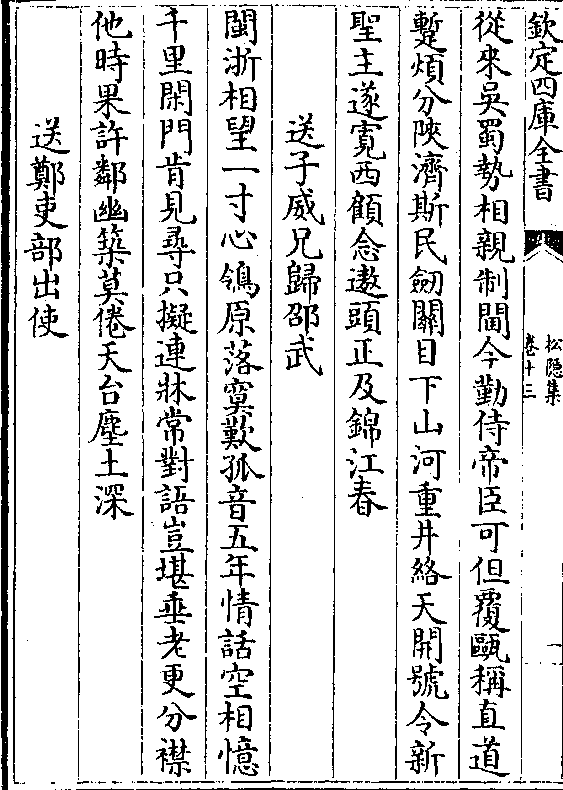 欽定四庫全書
松隱集
卷十三
一
從來吳蜀勢相親制閫今勤侍帝臣可但覆甌稱直道
蹔煩分陜濟斯民劒關目下山河重井絡天開號令新
聖主遂寛西顧念遨頭正及錦江春
送子威兄歸邵武
閩浙相望一寸心鴒原落寞歎孤音五年情話空相憶
千里閑門肯見尋只擬連牀常對語豈堪垂老更分襟
他時果許鄰幽築莫倦天台塵土深
送鄭吏部出使